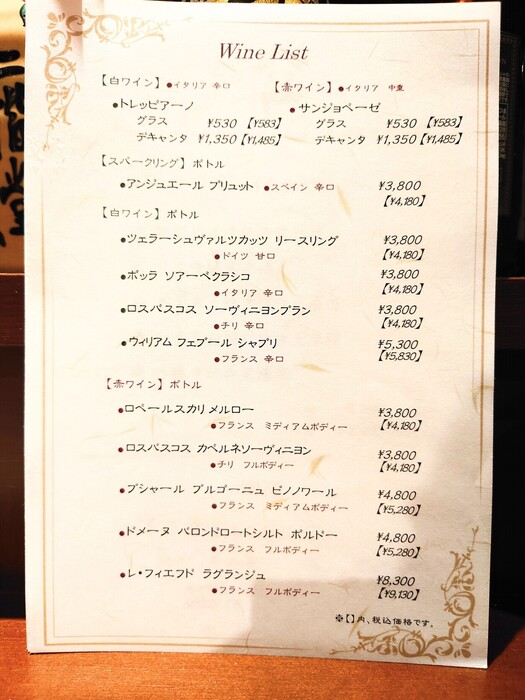 Wine List
【白ワイン】 ●イタリア 辛口 【赤ワイン】 ●イタリア 中重
●トレッビアーノ ●サンジョベーゼ
グラス ¥530 【¥583】 グラス ¥530 【¥583】
デキャンタ ¥1,350【¥1,485】 デキャンタ ¥1,350【¥1,485】
【スパークリング】ボトル
●アンジュエール ブリュット ●スペイン 辛口 ¥3,800
【¥4,180】
【白ワイン】ボトル
●ツェラーシュヴァルツカッツ リースリング ¥3,800
●ドイツ 甘口 【¥4,180】
●ボッラ ソアーベクラシコ ¥3,800
●イタリア 辛口 【¥4,180】
●ロスパスコス ソーヴィニヨンブラン ¥3,800
●チリ 辛口 【¥4,180】
●ウィリアム フェブール シャブリ ¥5,300
●フランス 辛口 【¥5,830】
【赤ワイン】ボトル
●ロベールスカリ メルロー ¥3,800
●フランス ミディアムボディー 【¥4,180】
●ロスパスコス カベルネソーヴィニヨン ¥3,800
●チリ フルボディー 【¥4,180】
●ブシャール ブルゴーニュ ピノノワール ¥4,800
●フランス ミディアムボディー 【¥5,280】
●ドメーヌ バロンドロートシルト ボルドー ¥4,800
●フランス フルボディー 【¥5,280】
●レ・フィエフド ラグランジュ ¥8,300
●フランス フルボディー 【¥9,130】
※【】内、税込価格です。